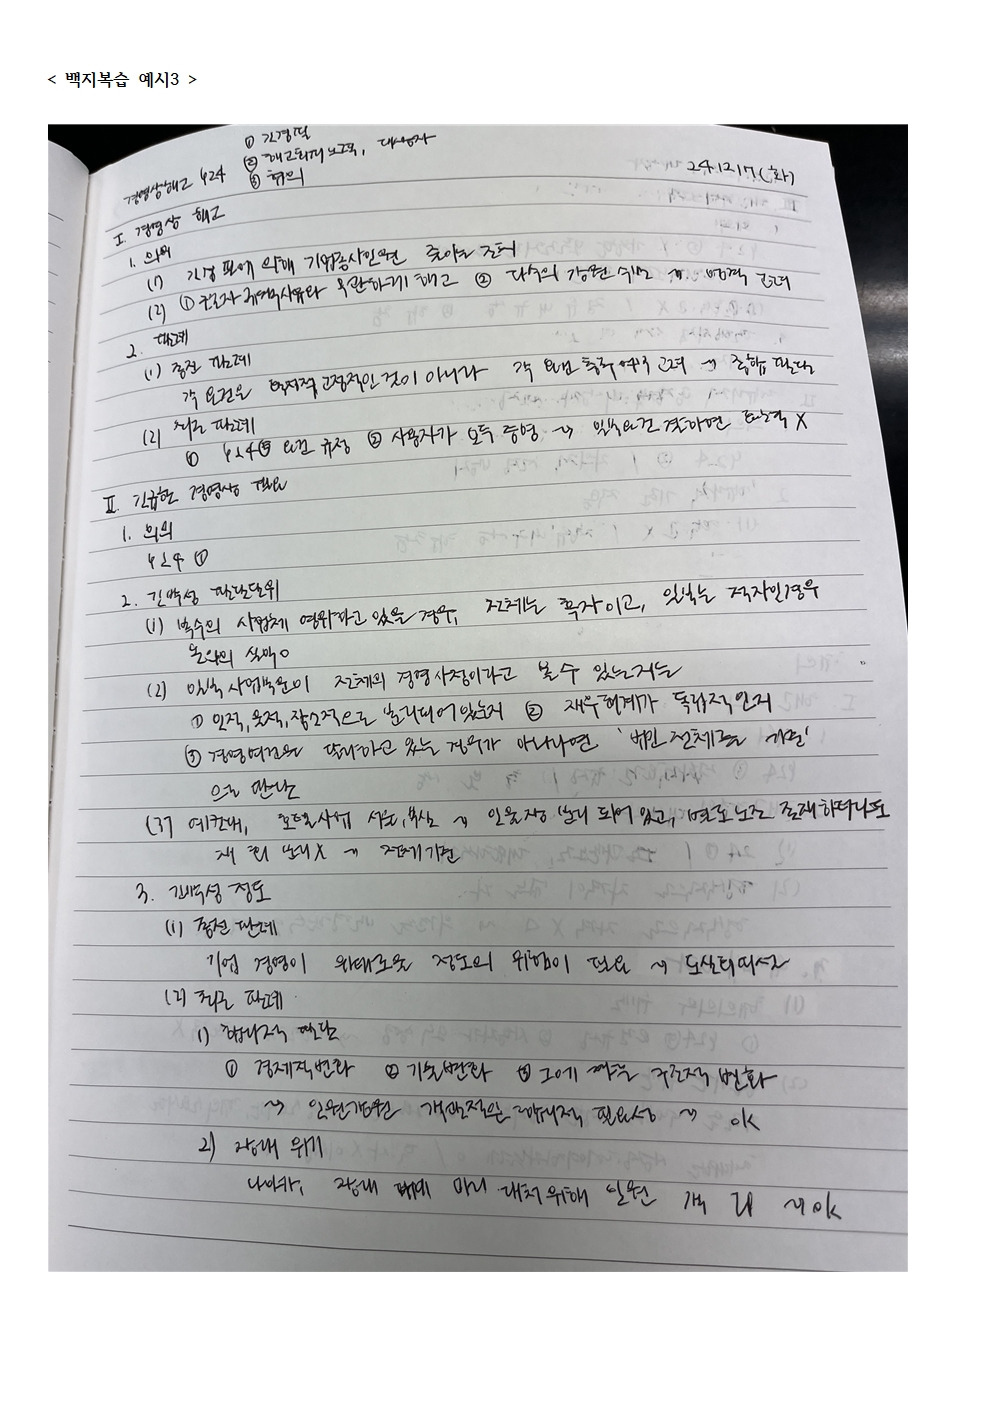 < 백지복습 예시3 >
① 긴경필
② 해고회피노력, 대상자
③ 협의
경영상해고 §24
24.12.17.(화)
I. 경영상 해고
1. 의의
(1) 긴경필에 의해 기업종사인원 줄이는
(2) ① 근로자 귀책사유와 무관하게 해고 ② 다수의 강원 수반 고려
2. 판례
(1) 종전 판례
각 요건은 확정적 고정적인 것이 아니라 각 요건 충족여부 고려 → 종합 판단
(2) 최근 판례
① §24⑤ 요건 규정 ② 사용자가 모두 증명 → 일부요건 결하면 효력 X
II. 긴급한 경영상 필요
1. 의의
§24 ①
2. 긴박성 판단단위
(1) 복수의 사업체 영위하고 있을 경우, 전체는 흑자이고, 일부는 적자인경우
논의의 실익 o
(2) 일부 사업부문이 전체의 경영사정이라고 볼 수 있는지는
① 인적, 물적, 장소적으로 분리되어있는지 ② 재무회계가 독립적인지
③ 경영여건을 달리하고 있는 경우가 아니라면 '법인 전체를 기준'
으로 판단
(3) 예컨대, 호텔사업 서울, 부산 → 인물장 분리 되어 있고, 별도노조 존재하더라도
재 회 분리 X → 전체기준
3. 긴박성 정도
(1) 종전 판례
기업 경영이 위태로울 정도의 위험이 필요 → 도산회피설
(2) 최근 판례
1) 합리적 판단
① 경제적변화 ② 기술변화 ③ 그에 따른 구조적 변화
→ 인원감원 객관적인 합리적 필요성 → OK
2) 장래 위기
나아가, 장래 위기 미리 대처위해 인원 객 합 → OK